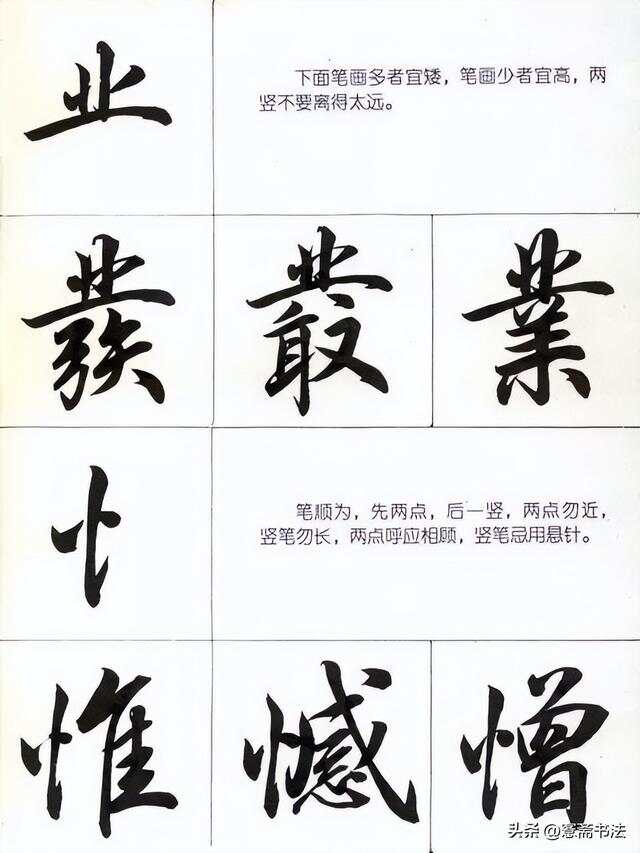 业
下面笔画多者宜矮，笔画少者宜高，两
竖不要离得太远。
發 叢 業
忄
笔顺为，先两点，后一竖，两点勿近，
竖笔勿长，两点呼应相顾，竖笔忌用悬针。
惟 憾 憎
头条 @斋书法